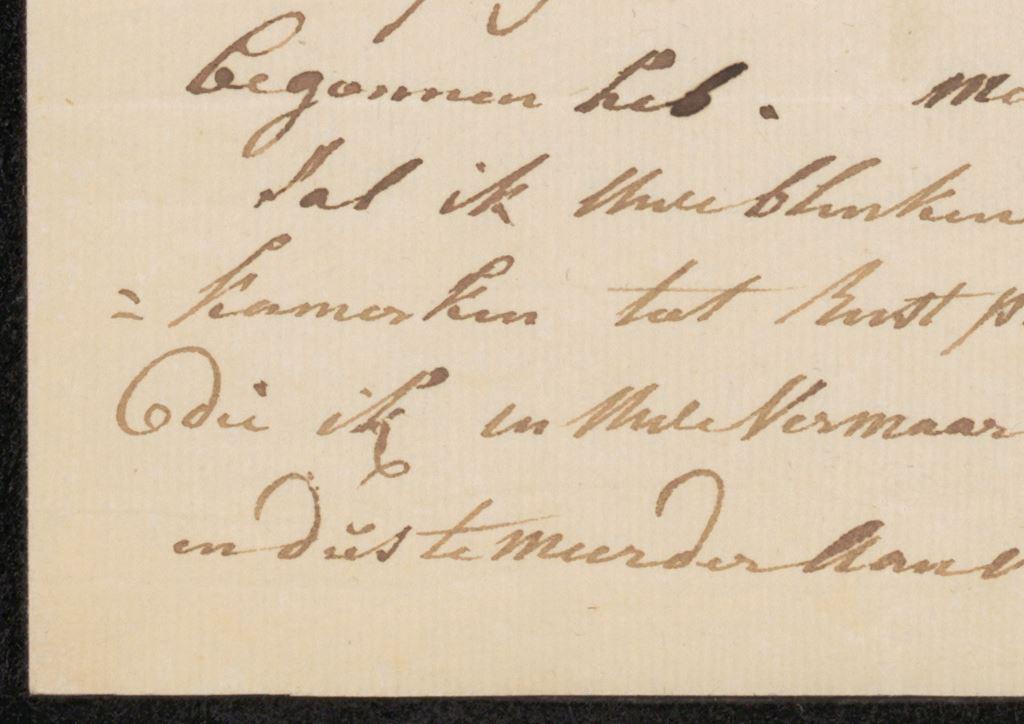 begonnen heb. Ma
dat ik Uwe blinken
= kamerken tot Rust p
die ik in Uwe Vermaar
en dùs te meerder Aan